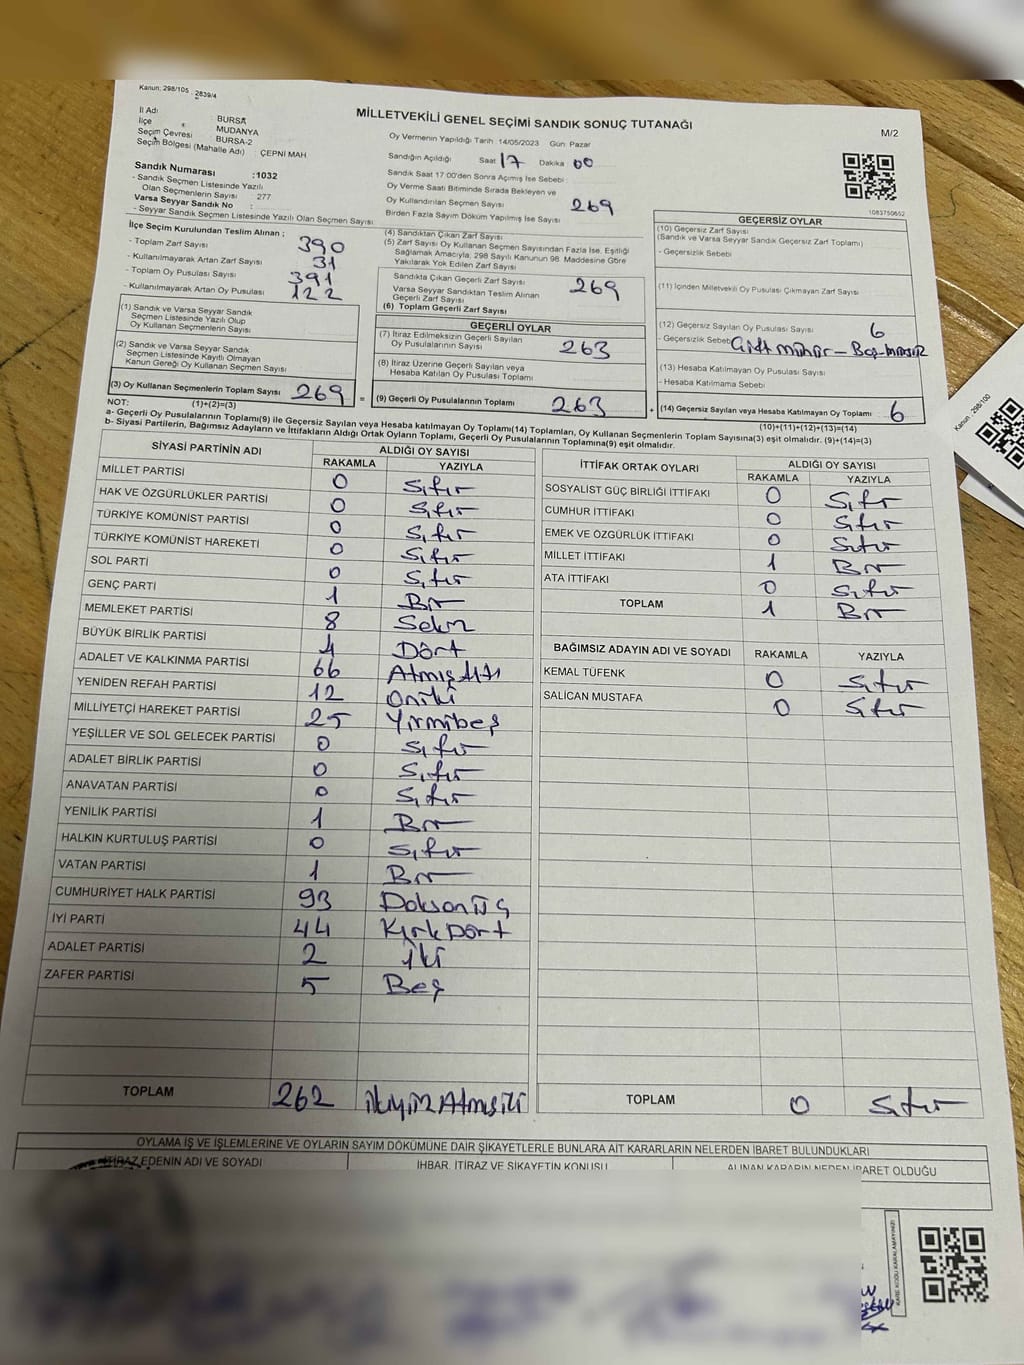 Kanun: 298/105 - 2839/4
MİLLETVEKİLİ GENEL SEÇİMİ SANDIK SONUÇ TUTANAĞI
M/2
İl Adı : BURSA
İlçe : MUDANYA
Seçim Çevresi : BURSA-2
Seçim Bölgesi (Mahalle Adı) : ÇEPNİ MAH
Sandık Numarası :1032
- Sandık Seçmen Listesinde Yazılı
Olan Seçmenlerin Sayısı 277
Varsa Seyyar Sandık No :
- Seyyar Sandık Seçmen Listesinde Yazılı Olan Seçmen Sayısı
Oy Vermenin Yapıldığı Tarih :14/05/2023 Gün: Pazar
Sandığın Açıldığı Saat 17 Dakika 00
Sandık Saat 17:00'den Sonra Açmış İse Sebebi :
Oy Verme Saati Bitiminde Sırada Bekleyen ve
Oy Kullandırılan Seçmen Sayısı 269
Birden Fazla Sayım Döküm Yapılmış İse Sayısı
1083750662
İlçe Seçim Kurulundan Teslim Alınan ;
- Toplam Zarf Sayısı 390
- Kullanılmayarak Artan Zarf Sayısı 31
- Toplam Oy Pusulası Sayısı 391
- Kullanılmayarak Artan Oy Pusulası 122
(1) Sandık ve Varsa Seyyar Sandık
Seçmen Listesinde Yazılı Olup
Oy Kullanan Seçmenlerin Sayısı
(2) Sandık ve Varsa Seyyar Sandık
Seçmen Listesinde Kayıtlı Olmayan
Kanun Gereği Oy Kullanan Seçmen Sayısı
(3) Oy Kullanan Seçmenlerin Toplam Sayısı 269
(1)+(2)=(3)
(4) Sandıktan Çıkan Zarf Sayısı
(5) Zarf Sayısı Oy Kullanan Seçmen Sayısından Fazla İse, Eşitliği
Sağlamak Amacıyla, 298 Sayılı Kanunun 98. Maddesine Göre
Yakılarak Yok Edilen Zarf Sayısı
Sandıkta Çıkan Geçerli Zarf Sayısı 269
Varsa Seyyar Sandıktan Teslim Alınan
Geçerli Zarf Sayısı
(6) Toplam Geçerli Zarf Sayısı
GEÇERLİ OYLAR
(7) İtiraz Edilmeksizin Geçerli Sayılan
Oy Pusulalarının Sayısı 263
(8) İtiraz Üzerine Geçerli Sayılan veya
Hesaba Katılan Oy Pusulası Toplamı
= (9) Geçerli Oy Pusulalarının Toplamı 263
GEÇERSİZ OYLAR
(10) Geçersiz Zarf Sayısı
(Sandık ve Varsa Seyyar Sandık Geçersiz Zarf Toplamı)
- Geçersizlik Sebebi
(11) İçinden Milletvekili Oy Pusulası Çıkmayan Zarf Sayısı
(12) Geçersiz Sayılan Oy Pusulası Sayısı 6
- Geçersizlik Sebebi Çift mühür - Boş
(13) Hesaba Katılmayan Oy Pusulası Sayısı
- Hesaba Katılmama Sebebi
+ (14) Geçersiz Sayılan veya Hesaba Katılmayan Oy Toplamı 6
(10)+(11)+(12)+(13)=(14)
NOT:
a- Geçerli Oy Pusulalarının Toplamı(9) ile Geçersiz Sayılan veya Hesaba katılmayan Oy Toplamı(14) Toplamları, Oy Kullanan Seçmenlerin Toplam Sayısına(3) eşit olmalıdır. (9)+(14)=(3)
b- Siyasi Partilerin, Bağımsız Adayların ve İttifakların Aldığı Ortak Oyların Toplamı, Geçerli Oy Pusulalarının Toplamına(9) eşit olmalıdır.
SİYASİ PARTİNİN ADI ALDIĞI OY SAYISI
RAKAMLA YAZIYLA
MİLLET PARTİSİ 0 Sıfır
HAK VE ÖZGÜRLÜKLER PARTİSİ 0 Sıfır
TÜRKİYE KOMÜNİST PARTİSİ 0 Sıfır
TÜRKİYE KOMÜNİST HAREKETİ 0 Sıfır
SOL PARTİ 0 Sıfır
GENÇ PARTİ 1 Bir
MEMLEKET PARTİSİ 8 Sekiz
BÜYÜK BİRLİK PARTİSİ 4 Dört
ADALET VE KALKINMA PARTİSİ 66 Atmışaltı
YENİDEN REFAH PARTİSİ 12 Oniki
MİLLİYETÇİ HAREKET PARTİSİ 25 Yirmibeş
YEŞİLLER VE SOL GELECEK PARTİSİ 0 Sıfır
ADALET BİRLİK PARTİSİ 0 Sıfır
ANAVATAN PARTİSİ 0 Sıfır
YENİLİK PARTİSİ 1 Bir
HALKIN KURTULUŞ PARTİSİ 0 Sıfır
VATAN PARTİSİ 1 Bir
CUMHURİYET HALK PARTİSİ 93 Doksanüç
İYİ PARTİ 44 KırkDört
ADALET PARTİSİ 2 İki
ZAFER PARTİSİ 5 Beş
TOPLAM 262 ikiyüzAtmışiki
İTTİFAK ORTAK OYLARI ALDIĞI OY SAYISI
RAKAMLA YAZIYLA
SOSYALİST GÜÇ BİRLİĞİ İTTİFAKI 0 Sıfır
CUMHUR İTTİFAKI 0 Sıfır
EMEK VE ÖZGÜRLÜK İTTİFAKI 0 Sıfır
MİLLET İTTİFAKI 1 Bir
ATA İTTİFAKI 0 Sıfır
TOPLAM 1 Bir
BAĞIMSIZ ADAYIN ADI VE SOYADI RAKAMLA YAZIYLA
KEMAL TÜFENK 0 Sıfır
SALİCAN MUSTAFA 0 Sıfır
TOPLAM 0 Sıfır
OYLAMA İŞ VE İŞLEMLERİNE VE OYLARIN SAYIM DÖKÜMÜNE DAİR ŞİKAYETLERLE BUNLARA AİT KARARLARIN NELERDEN İBARET BULUNDUKLARI
İTİRAZ EDENİN ADI VE SOYADI İHBAR, İTİRAZ VE ŞİKAYETİN KONUSU ALINAN KARARIN NEDEN İBARET OLDUĞU
KARE KODU KARALAMAYINIZ!
Kanun : 298/100